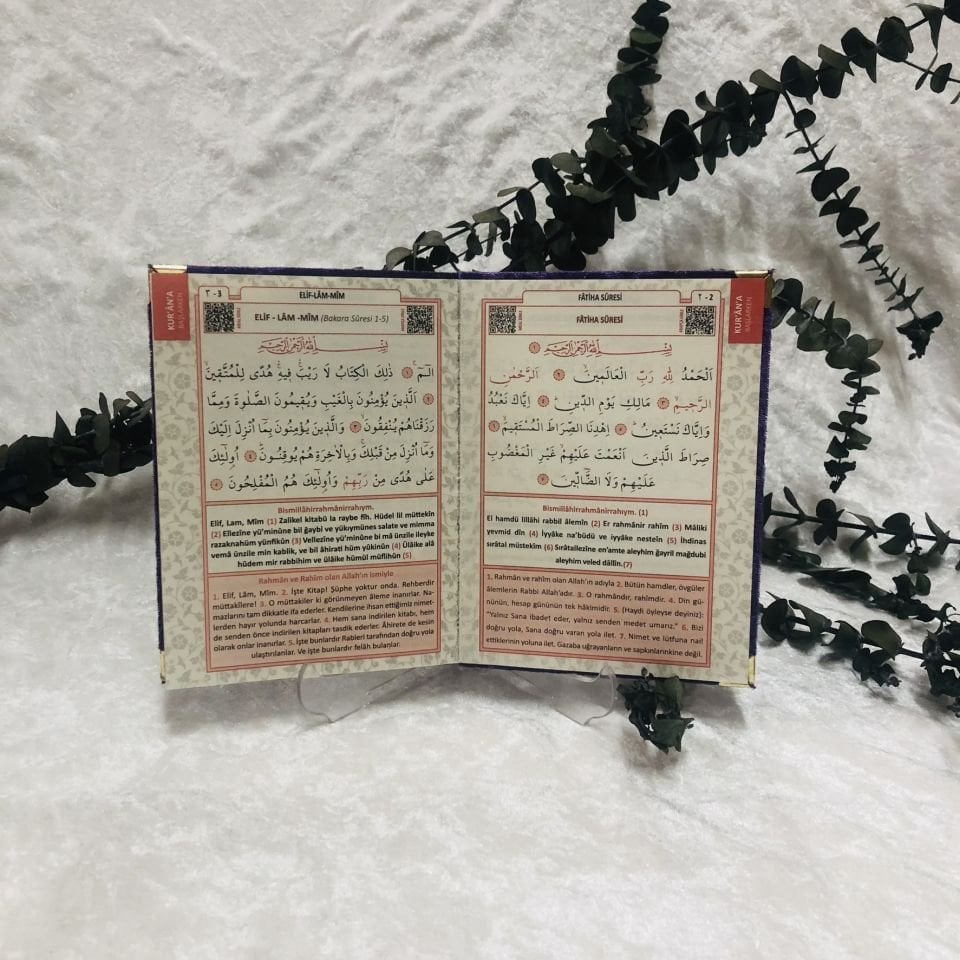 ٢ - 2
FÂTİHA SÛRESİ
KUR'ÂN'A
BAŞLARKEN
FÂTİHA SÛRESİ
بِسْمِ اللّٰهِ الرَّحْمٰنِ الرَّحِيمِ ١
اَلْحَمْدُ لِلّٰهِ رَبِّ الْعَالَمِينَ ٢ اَلرَّحْمٰنِ
الرَّحِيمِ ٣ مَالِكِ يَوْمِ الدِّينِ ٤ اِيَّاكَ نَعْبُدُ
وَاِيَّاكَ نَسْتَعِينُ ٥ اِهْدِنَا الصِّرَاطَ الْمُسْتَقِيمَ ٦
صِرَاطَ الَّذِينَ اَنْعَمْتَ عَلَيْهِمْ غَيْرِ الْمَغْضُوبِ
عَلَيْهِمْ وَلَا الضَّٓالِّينَ ٧
Bismillâhirrahmânirrahıym. (1)
El hamdü lillâhi rabbil âlemîn (2) Er rahmânir rahîm (3) Mâliki
yevmid dîn (4) İyyâke na'büdü ve iyyâke nesteîn (5) İhdinas
sırâtal müstekîm (6) Sırâtallezine en'amte aleyhim ğayril mağdubi
aleyhim veled dâllîn.(7)
1. Rahmân ve rahîm olan Allah'ın adıyla 2. Bütün hamdler, övgüler
âlemlerin Rabbi Allah'adır. 3. O rahmândır, rahîmdir. 4. Din gü-
nünün, hesap gününün tek hâkimidir. 5. (Haydi öyleyse deyiniz):
"Yalnız Sana ibadet eder, yalnız senden medet umarız." 6. Bizi
doğru yola, Sana doğru varan yola ilet. 7. Nimet ve lütfuna nail
ettiklerinin yoluna ilet. Gazaba uğrayanların ve sapkınlarınkine değil.
٣ - 3
ELİF-LÂM-MÎM
KUR'ÂN'A
BAŞLARKEN
ELİF - LÂM -MÎM (Bakara Sûresi 1-5)
بِسْمِ اللّٰهِ الرَّحْمٰنِ الرَّحِيمِ
الٓمٓ ١ ذٰلِكَ الْكِتَابُ لَا رَيْبَ فِيهِ هُدًى لِلْمُتَّقِينَ
٢ اَلَّذِينَ يُؤْمِنُونَ بِالْغَيْبِ وَيُقِيمُونَ الصَّلٰوةَ وَمِمَّا
رَزَقْنَاهُمْ يُنْفِقُونَ ٣ وَالَّذِينَ يُؤْمِنُونَ بِمَٓا اُنْزِلَ اِلَيْكَ
وَمَٓا اُنْزِلَ مِنْ قَبْلِكَ وَبِالْاٰخِرَةِ هُمْ يُوقِنُونَ ٤ اُو۬لٰٓئِكَ
عَلٰى هُدًى مِنْ رَبِّهِمْ وَاُو۬لٰٓئِكَ هُمُ الْمُفْلِحُونَ ٥
Bismillâhirrahmânirrahıym.
Elif, Lam, Mîm (1) Zalikel kitabü la raybe fîh. Hüdel lil müttekîn
(2) Ellezîne yü'minûne bil ğaybi ve yükıymünes salate ve mimma
razaknahüm yünfikün (3) Vellezîne yü'minûne bi mâ ünzile ileyke
vemâ ünzile min kablik, ve bil âhirati hüm yûkinûn (4) Ülâike alâ
hüdem mir rabbihim ve ülâike hümül müflihûn (5)
Rahmân ve Rahîm olan Allah'ın ismiyle
1. Elif, Lâm, Mîm. 2. İşte Kitap! Şüphe yoktur onda. Rehberdir
müttakîlere! 3. O müttakiler ki görünmeyen âleme inanırlar. Na-
mazlarını tam dikkatle ifa ederler. Kendilerine ihsan ettiğimiz nimet-
lerden hayır yolunda harcarlar. 4. Hem sana indirilen kitabı, hem
de senden önce indirilen kitapları tasdik ederler. Âhirete de kesin
olarak onlar inanırlar. 5. İşte bunlardır Rableri tarafından doğru yola
ulaştırılanlar. Ve işte bunlardır felâh bulanlar.